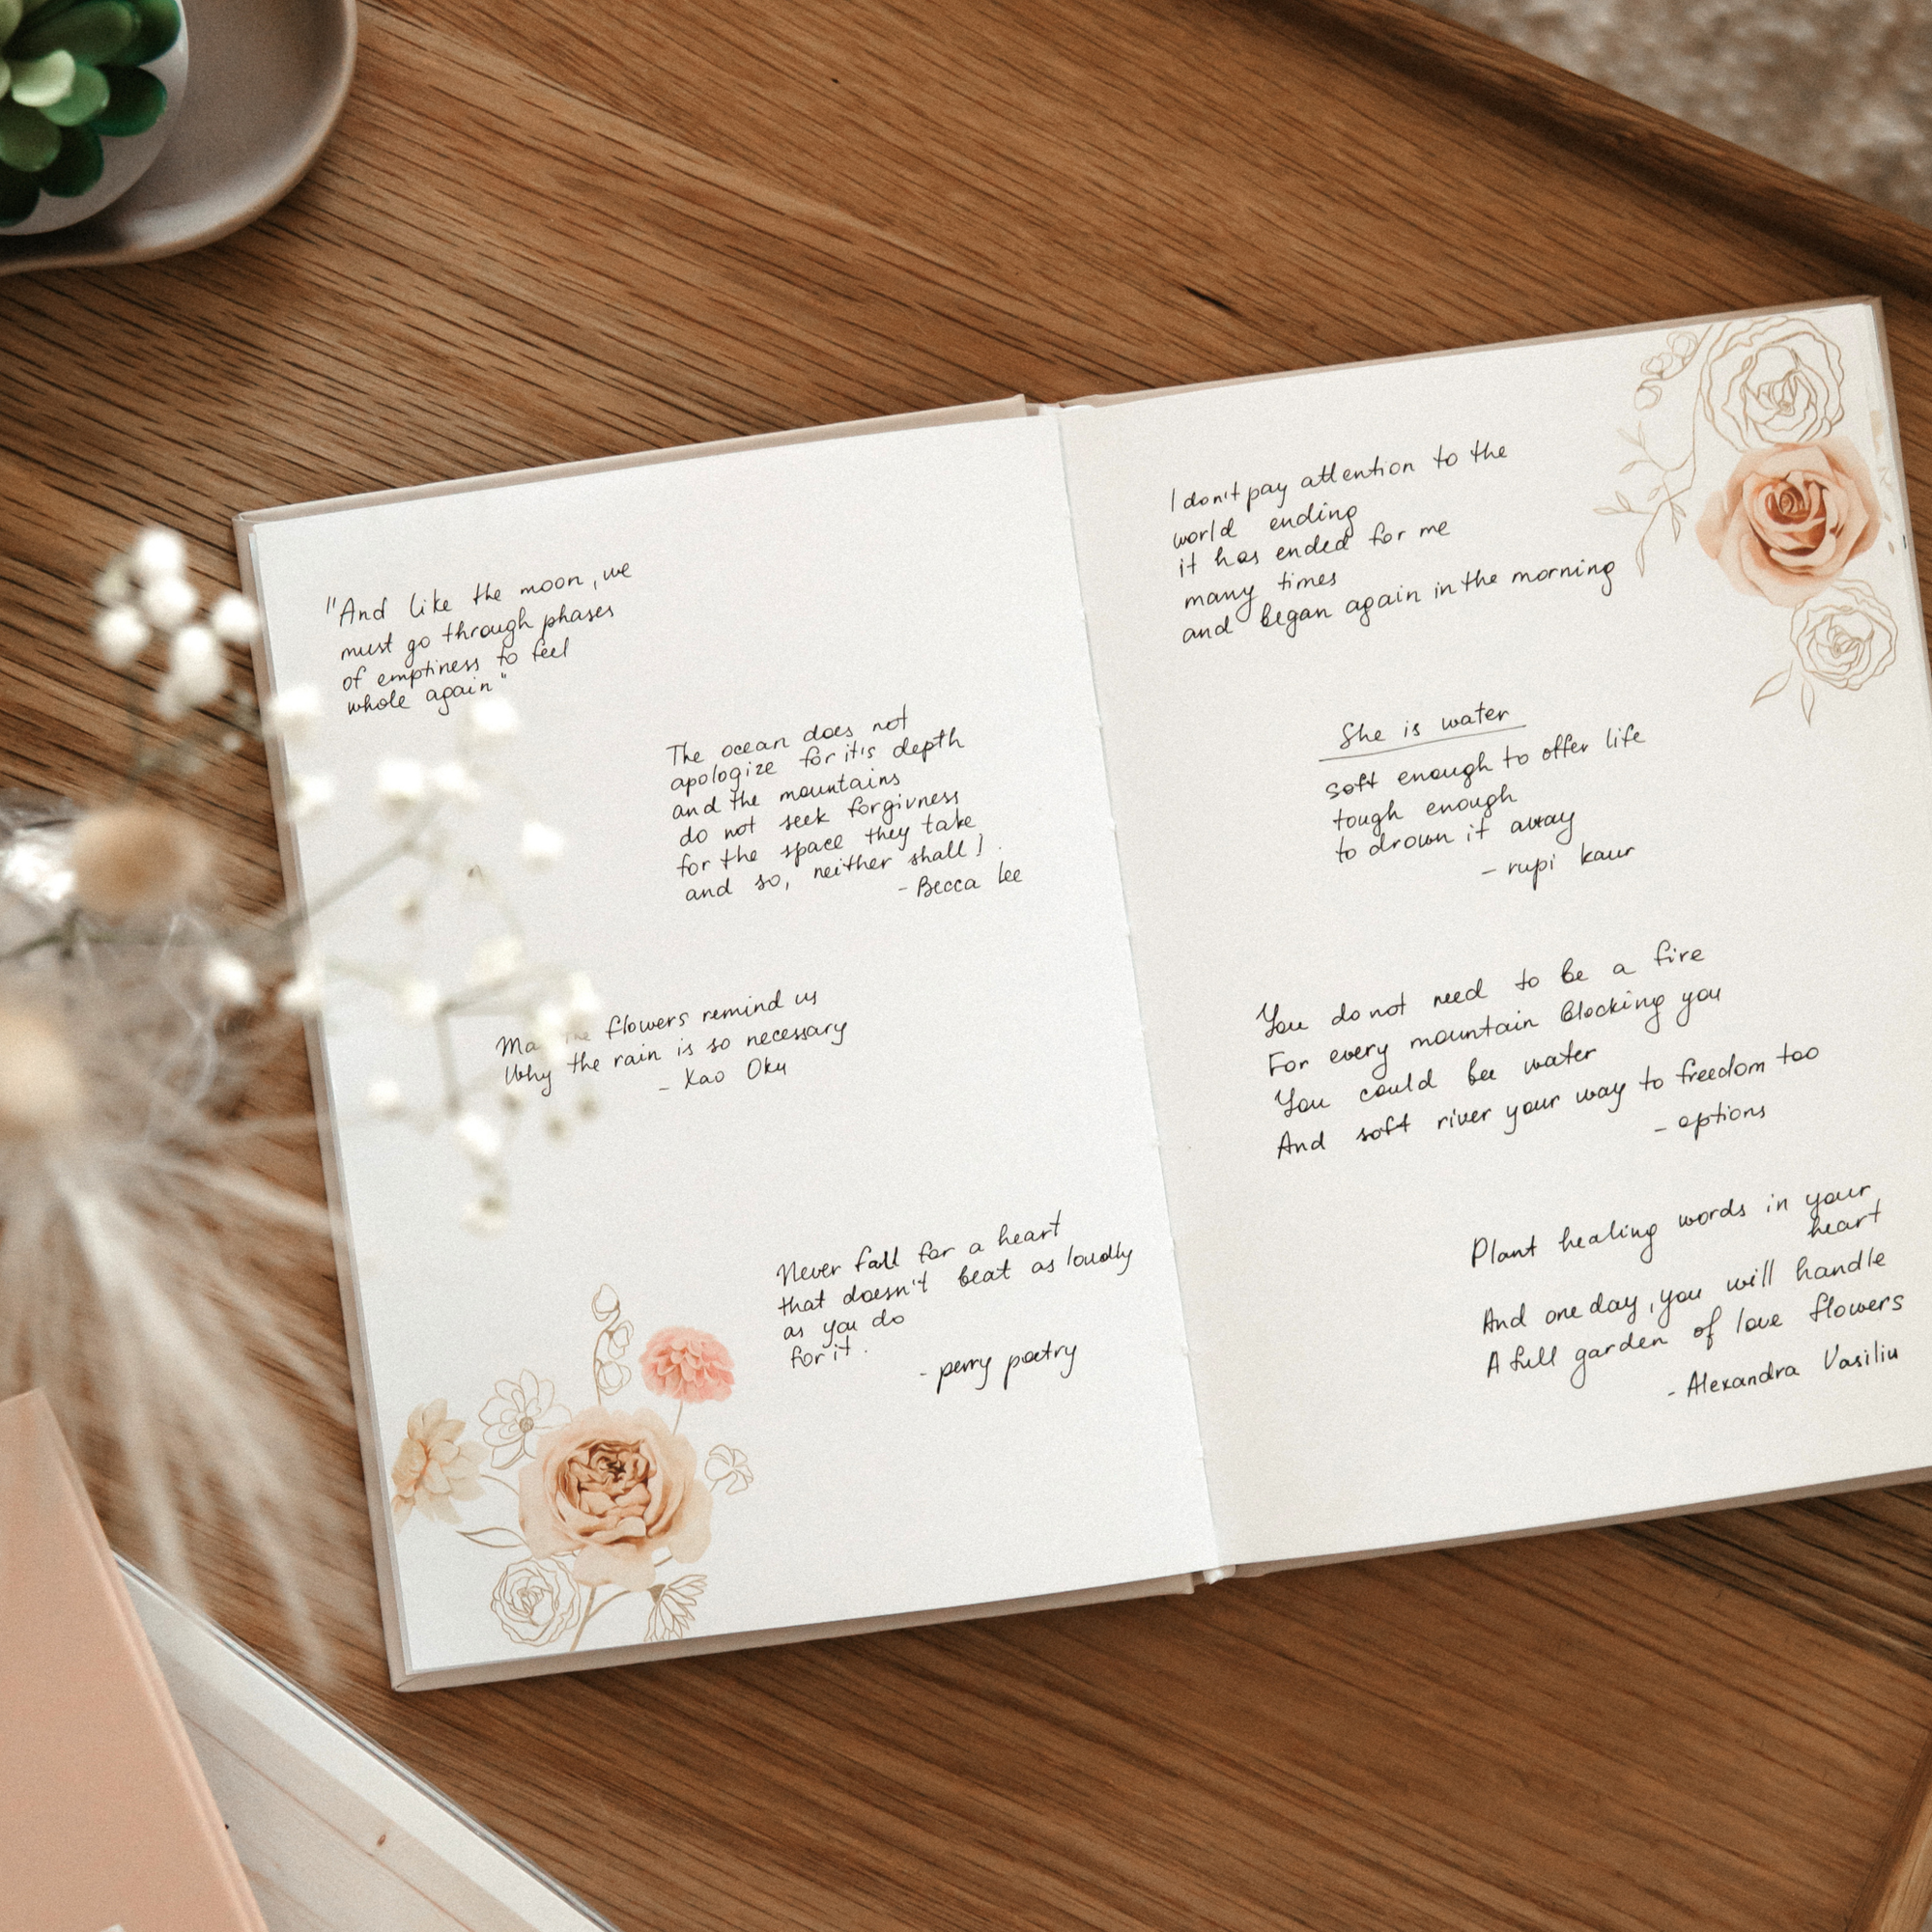 "And like the moon, we
must go through phases
of emptiness to feel
whole again"
The ocean does not
apologize for it's depth
and the mountains
do not seek forgivness
for the space they take
and so, neither shall I.
- Becca Lee
flowers remind us
Why the rain is so necessary
- Xao Oku
Never fall for a heart
that doesn't beat as loudly
as you do
for it.
- perry poetry
I don't pay attention to the
world ending
it has ended for me
many times
and began again in the morning
She is water
soft enough to offer life
tough enough
to drown it away
- rupi kaur
You do not need to be a fire
For every mountain blocking you
You could be water
And soft river your way to freedom too
- options
Plant healing words in your
heart
And one day, you will handle
A full garden of love flowers
- Alexandra Vasiliu